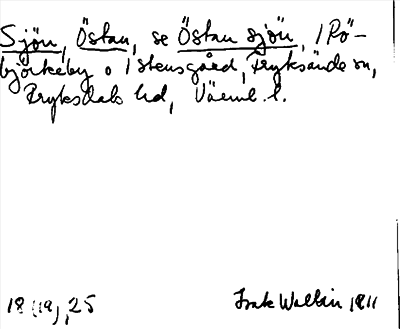 Sjön, Östan, se Östan sjön, 1 Rö-
björkeby o 1 stensgård, Fryksände sn,
Fryksdals hd, Värml. l.
18 (19), 25 Frak Wallin 1911